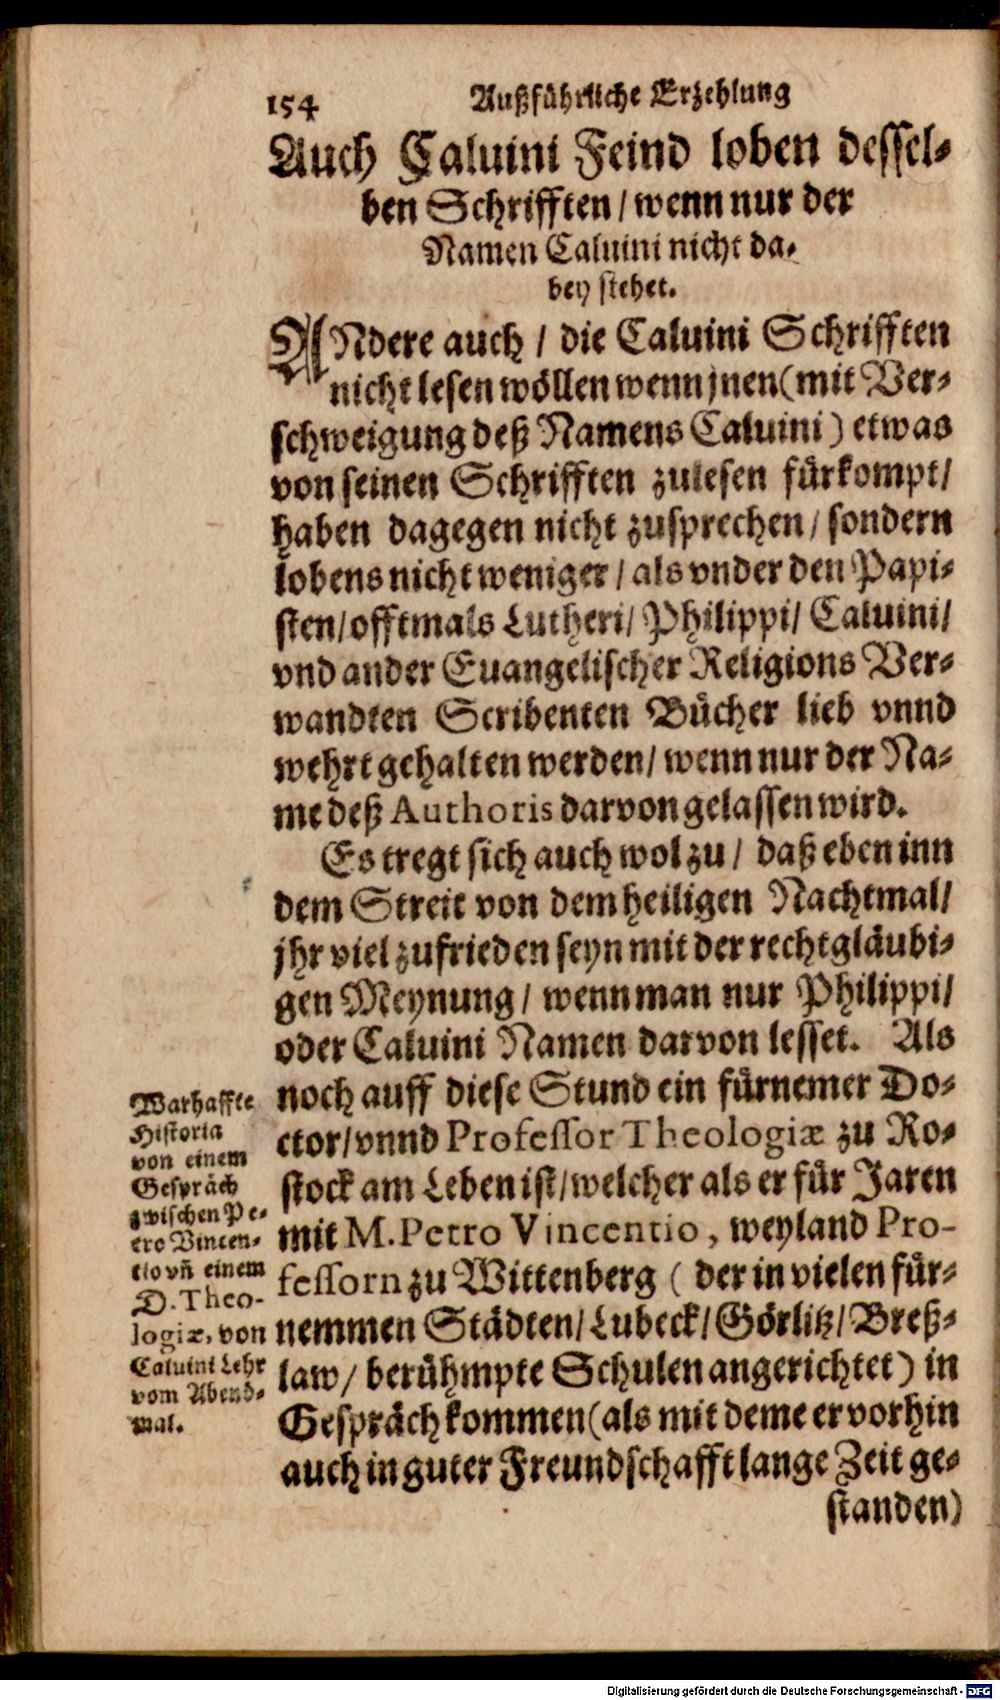 154 Außführliche Erzehlung
Auch Caluini Feind loben dessel-
ben Schrifften / wenn nur der
Namen Caluini nicht da-
bey stehet.
ANdere auch / die Caluini Schrifften
nicht lesen wöllen wenn jnen (mit Ver-
schweigung deß Namens Caluini) etwas
von seinen Schrifften zulesen fürkompt /
haben dagegen nicht zusprechen / sondern
lobens nicht weniger / als vnder den Papi-
sten / offtmals Lutheri / Philippi / Caluini /
vnd ander Euangelischer Religions Ver-
wandten Scribenten Bücher lieb vnnd
wehrt gehalten werden / wenn nur der Na-
me deß Authoris darvon gelassen wird.
Es tregt sich auch wol zu / daß eben inn
dem Streit von dem heiligen Nachtmal /
jhr viel zufrieden seyn mit der rechtgläubi-
gen Meynung / wenn man nur Philippi /
oder Caluini Namen darvon lesset. Als
noch auff diese Stund ein fürnemer Do-
ctor / vnnd Professor Theologiæ zu Ro-
stock am Leben ist / welcher als er für Jaren
mit M. Petro Vincentio, weyland Pro-
fessorn zu Wittenberg ( der in vielen für-
nemmen Städten / Lubeck / Görlitz / Breß-
law / berühmpte Schulen angerichtet ) in
Gespräch kommen (als mit deme er vorhin
auch in guter Freundschafft lange Zeit ge-
standen)
Warhaffte
Historia
von einem
Gespräch
zwischen Pe-
tro Vincen-
tio vñ einem
D. Theo-
logiæ, von
Caluini Lehr
vom Abend-
mal.
Digitalisierung gefördert durch die Deutsche Forschungsgemeinschaft - DFG